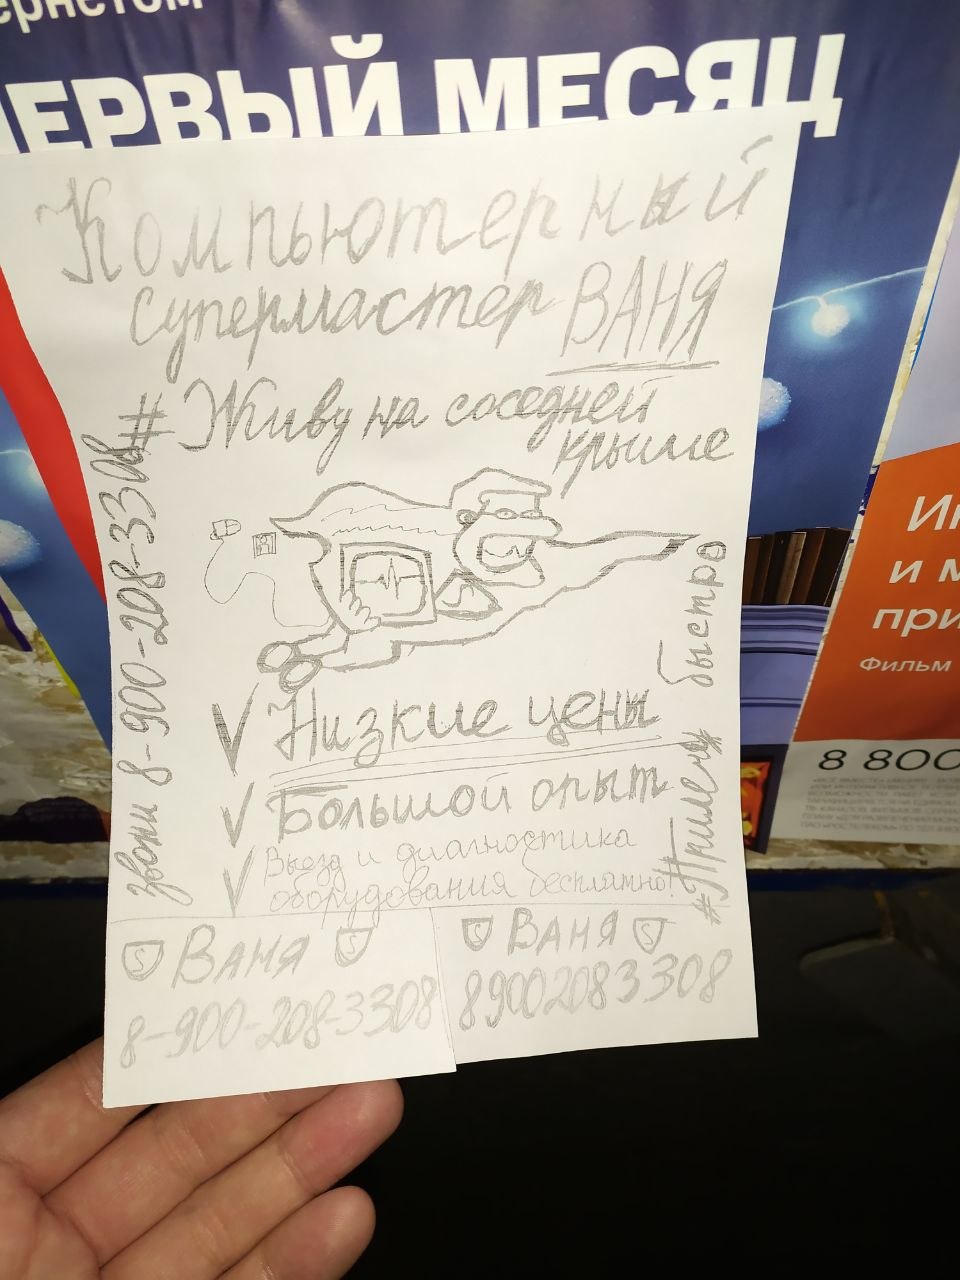 ПЕРВЫЙ МЕСЯЦ
Компьютерный
супермастер ВАНЯ
# Живу на соседней
крыше
Звони 8-900-208-3308
#Прилечу быстро
Низкие цены
Большой опыт
Выезд и диагностика
оборудования бесплатно!
S ВАНЯ S
8-900-208-3308
S ВАНЯ S
89002083308
и м
при
Фильм
8 800